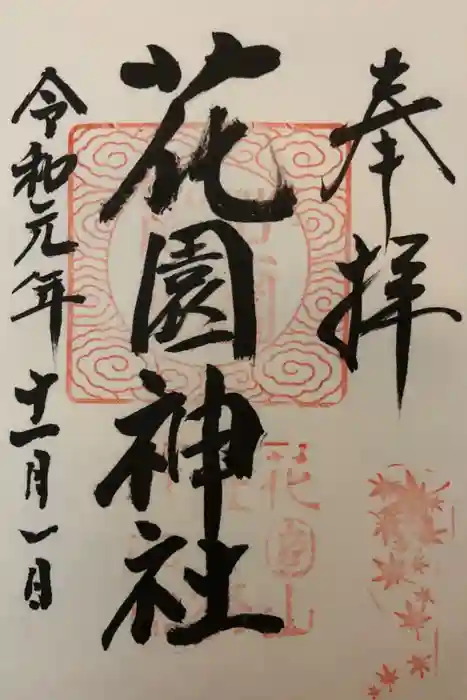 奉拝
花園神社
令和元年十一月一日
花園山